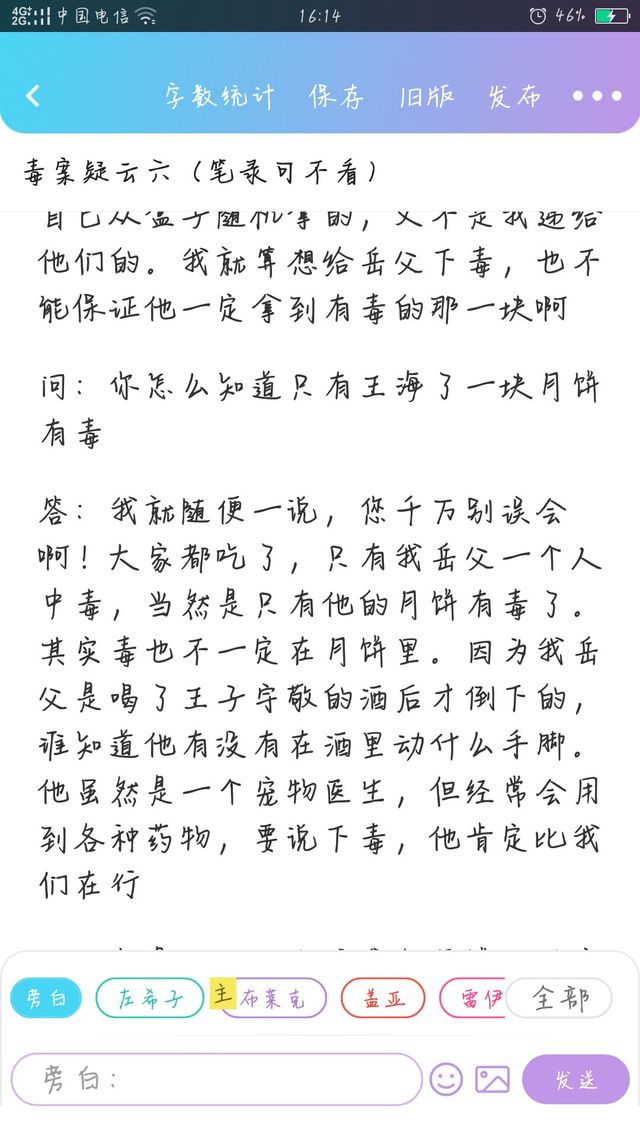 4G+ 2G 中国电信 16:14 46%
字数统计 保存 旧版 发布
毒案疑云六（笔录可不看）
自己从盒子随机拿的，又不是我递给
他们的。我就算想给岳父下毒，也不
能保证他一定拿到有毒的那一块啊
问：你怎么知道只有王海了一块月饼
有毒
答：我就随便一说，您千万别误会
啊！大家都吃了，只有我岳父一个人
中毒，当然是只有他的月饼有毒了。
其实毒也不一定在月饼里。因为我岳
父是喝了王子宇敬的酒后才倒下的，
谁知道他有没有在酒里动什么手脚。
他虽然是一个宠物医生，但经常会用
到各种药物，要说下毒，他肯定比我
们在行
旁白 左希子 主 布莱克 盖亚 雷伊 全部
旁白： 发送